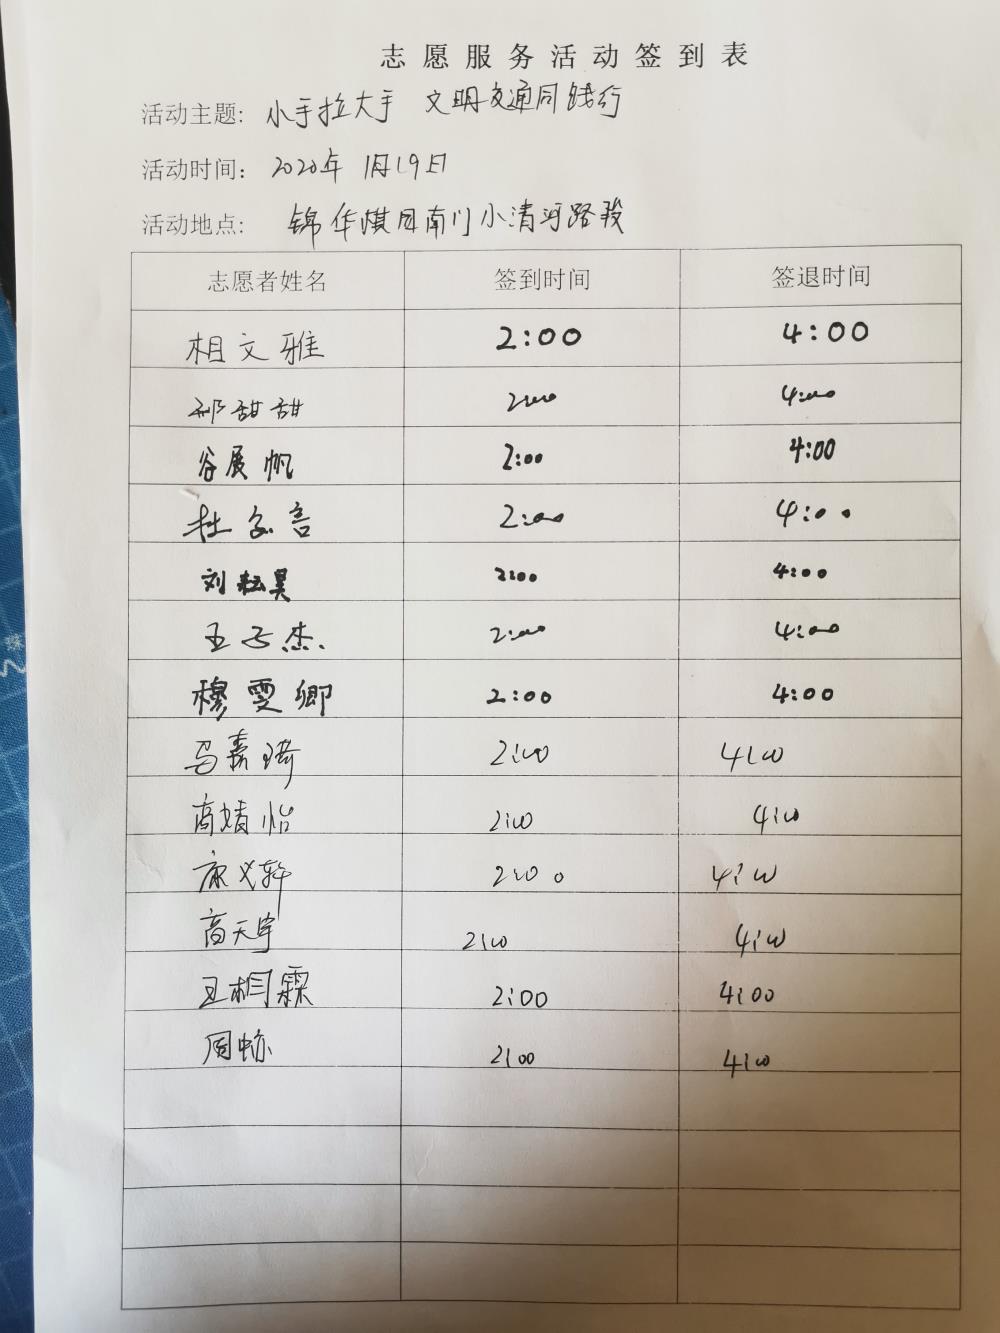 志愿服务活动签到表
活动主题: 小手拉大手 文明交通同践行
活动时间: 2020年 1月19日
活动地点: 锦华棋园南门小清河路段
志愿者姓名 签到时间 签退时间
相文雅 2:00 4:00
祁甜甜 2:00 4:00
谷展帆 2:00 4:00
杜言 2:00 4:00
刘耘昊 2:00 4:00
王子杰 2:00 4:00
穆雯卿 2:00 4:00
马嘉琦 2:00 4:00
高婧怡 2:00 4:00
康义轩 2:00 4:00
高天宇 2:00 4:00
王相霖 2:00 4:00
周 2:00 4:00